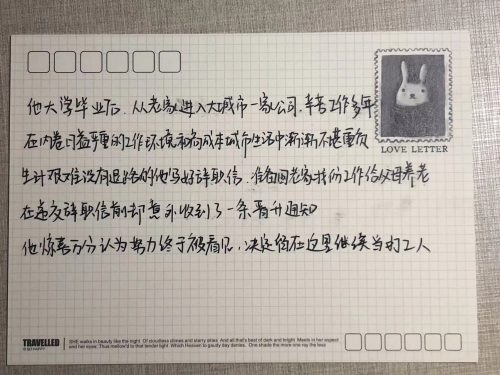 LOVE LETTER
他大学毕业后，从老家进入大城市一家公司，辛苦工作多年
在内卷日益严重的工作环境和高成本城市生活中渐渐不堪重负
生计艰难没有退路的他写好辞职信，准备回老家找份工作给父母养老
在递交辞职信前却意外收到了一条晋升通知
他惊喜万分认为努力终于被看见，决定留在这里继续当打工人
TRAVELLED
IS SO HAPPY
SHE walks in beauty like the night Of cloudless climes and starry skies And all that's best of dark and bright Meets in her aspect
and her eyes; Thus mellow'd to that tender light Which Heaven to gaudy day denies. One shade the more one ray the less